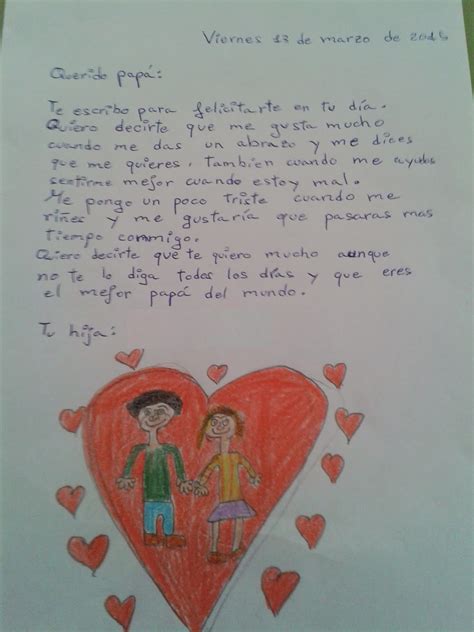 Viernes 13 de marzo de 2015
Querido papá:
Te escribo para felicitarte en tu día.
Quiero decirte que me gusta mucho
cuando me das un abrazo y me dices
que me quieres. Tambien cuando me ayudas
sentirme mejor cuando estoy mal.
Me pongo un poco triste cuando me
riñes y me gustaría que pasaras mas
tiempo conmigo.
Quiero decirte que te quiero mucho aunque
no te lo diga todos los días y que eres
el mejor papá del mundo.
Tu hija: